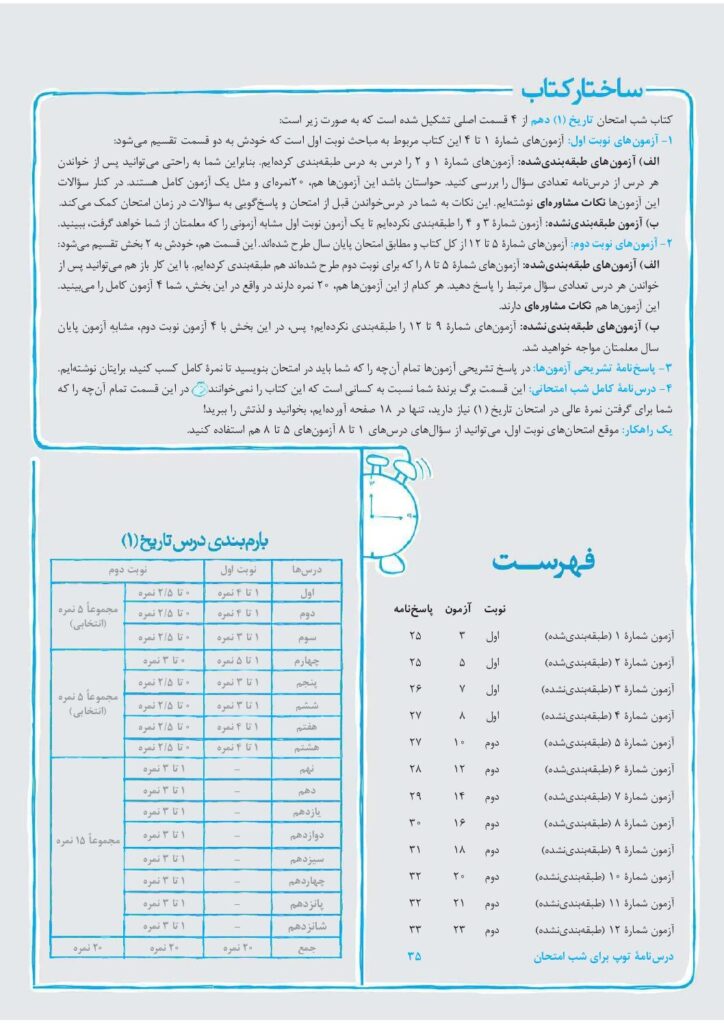 ساختار کتاب
کتاب شب امتحان تاریخ (۱) دهم از ۴ قسمت اصلی تشکیل شده است که به صورت زیر است:
۱- آزمون‌های نوبت اول: آزمون‌های شمارهٔ ۱ تا ۴ این کتاب مربوط به مباحث نوبت اول است که خودش به دو قسمت تقسیم می‌شود:
الف) آزمون‌های طبقه‌بندی‌شده: آزمون‌های شمارهٔ ۱ و ۲ را درس به درس طبقه‌بندی کرده‌ایم. بنابراین شما به راحتی می‌توانید پس از خواندن
هر درس از درس‌نامه تعدادی سؤال را بررسی کنید. حواستان باشد این آزمون‌ها هم، ۲۰نمره‌ای و مثل یک آزمون کامل هستند. در کنار سؤالات
این آزمون‌ها نکات مشاوره‌ای نوشته‌ایم. این نکات به شما در درس‌خواندن قبل از امتحان و پاسخ‌گویی به سؤالات در زمان امتحان کمک می‌کند.
ب) آزمون طبقه‌بندی‌نشده: آزمون شمارهٔ ۳ و ۴ را طبقه‌بندی نکرده‌ایم تا یک آزمون نوبت اول مشابه آزمونی را که معلمتان از شما خواهد گرفت، ببینید.
۲- آزمون‌های نوبت دوم: آزمون‌های شمارهٔ ۵ تا ۱۲ از کل کتاب و مطابق امتحان پایان سال طرح شده‌اند. این قسمت هم، خودش به ۲ بخش تقسیم می‌شود:
الف) آزمون‌های طبقه‌بندی‌شده: آزمون‌های شمارهٔ ۵ تا ۸ را که برای نوبت دوم طرح شده‌اند هم طبقه‌بندی کرده‌ایم. با این کار باز هم می‌توانید پس از
خواندن هر درس تعدادی سؤال مرتبط را پاسخ دهید. هر کدام از این آزمون‌ها هم، ۲۰ نمره دارند در واقع در این بخش، شما ۴ آزمون کامل را می‌بینید.
این آزمون‌ها هم نکات مشاوره‌ای دارند.
ب) آزمون‌های طبقه‌بندی‌نشده: آزمون‌های شمارهٔ ۹ تا ۱۲ را طبقه‌بندی نکرده‌ایم؛ پس، در این بخش با ۴ آزمون نوبت دوم، مشابهِ آزمون پایان
سال معلمتان مواجه خواهید شد.
۳- پاسخ‌نامهٔ تشریحی آزمون‌ها: در پاسخ تشریحی آزمون‌ها تمام آن‌چه را که شما باید در امتحان بنویسید تا نمرهٔ کامل کسب کنید، برایتان نوشته‌ایم.
۴- درس‌نامهٔ کامل شب امتحانی: این قسمت برگ برندهٔ شما نسبت به کسانی است که این کتاب را نمی‌خوانند در این قسمت تمام آن‌چه را که
شما برای گرفتن نمرهٔ عالی در امتحان تاریخ (۱) نیاز دارید، تنها در ۱۸ صفحه آورده‌ایم، بخوانید و لذتش را ببرید!
یک راهکار: موقع امتحان‌های نوبت اول، می‌توانید از سؤال‌های درس‌های ۱ تا ۸ آزمون‌های ۵ تا ۸ هم استفاده کنید.
فهرست
نوبت آزمون پاسخ‌نامه
آزمون شمارهٔ ۱ (طبقه‌بندی‌شده) اول ۳ ۲۵
آزمون شمارهٔ ۲ (طبقه‌بندی‌شده) اول ۵ ۲۵
آزمون شمارهٔ ۳ (طبقه‌بندی‌نشده) اول ۷ ۲۶
آزمون شمارهٔ ۴ (طبقه‌بندی‌نشده) اول ۸ ۲۷
آزمون شمارهٔ ۵ (طبقه‌بندی‌شده) دوم ۱۰ ۲۷
آزمون شمارهٔ ۶ (طبقه‌بندی‌شده) دوم ۱۲ ۲۸
آزمون شمارهٔ ۷ (طبقه‌بندی‌شده) دوم ۱۴ ۲۹
آزمون شمارهٔ ۸ (طبقه‌بندی‌شده) دوم ۱۶ ۳۰
آزمون شمارهٔ ۹ (طبقه‌بندی‌نشده) دوم ۱۸ ۳۱
آزمون شمارهٔ ۱۰ (طبقه‌بندی‌نشده) دوم ۲۰ ۳۲
آزمون شمارهٔ ۱۱ (طبقه‌بندی‌نشده) دوم ۲۱ ۳۲
آزمون شمارهٔ ۱۲ (طبقه‌بندی‌نشده) دوم ۲۳ ۳۳
درس‌نامهٔ توپ برای شب امتحان ۳۵
بارم‌بندی درس تاریخ (۱)
درس‌ها نوبت اول نوبت دوم
اول ۱ تا ۴ نمره ۰ تا ۲/۵ نمره
دوم ۱ تا ۴ نمره ۰ تا ۲/۵ نمره
سوم ۱ تا ۳ نمره ۰ تا ۲/۵ نمره
مجموعاً ۵ نمره
(انتخابی)
چهارم ۱ تا ۵ نمره ۰ تا ۳ نمره
پنجم ۱ تا ۳ نمره ۰ تا ۲/۵ نمره
ششم ۱ تا ۳ نمره ۰ تا ۲/۵ نمره
هفتم ۱ تا ۴ نمره ۰ تا ۲/۵ نمره
هشتم ۱ تا ۴ نمره ۰ تا ۲/۵ نمره
مجموعاً ۵ نمره
(انتخابی)
نهم – ۱ تا ۳ نمره
دهم – ۱ تا ۳ نمره
یازدهم – ۱ تا ۳ نمره
دوازدهم – ۱ تا ۳ نمره
سیزدهم – ۱ تا ۳ نمره
چهاردهم – ۱ تا ۳ نمره
پانزدهم – ۱ تا ۳ نمره
شانزدهم – ۱ تا ۳ نمره
مجموعاً ۱۵ نمره
جمع ۲۰ نمره ۲۰ نمره ۲۰ نمره